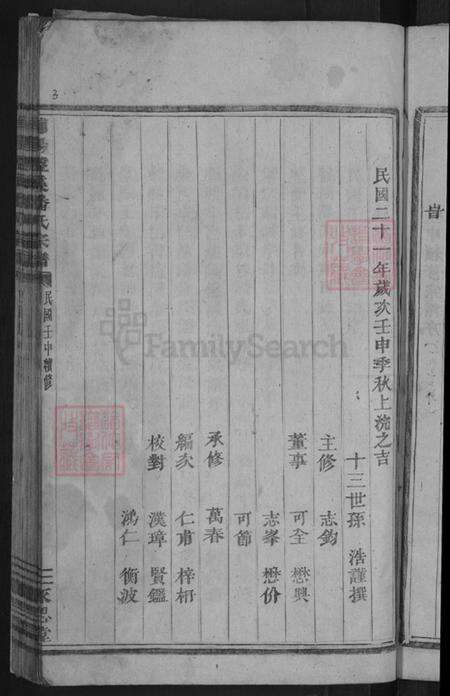 民國二十一年歲次壬申季秋上浣之吉
十三世孫 浩謹撰
主修 志鈞
董事 可全 懋興
志峯 懋价
可節
承修 萬春
編次 仁甫 梓桐
校對 漢璋 賢鑑
鴻仁 衡波
潘氏宗譜
民國壬申續修
FamilySearch